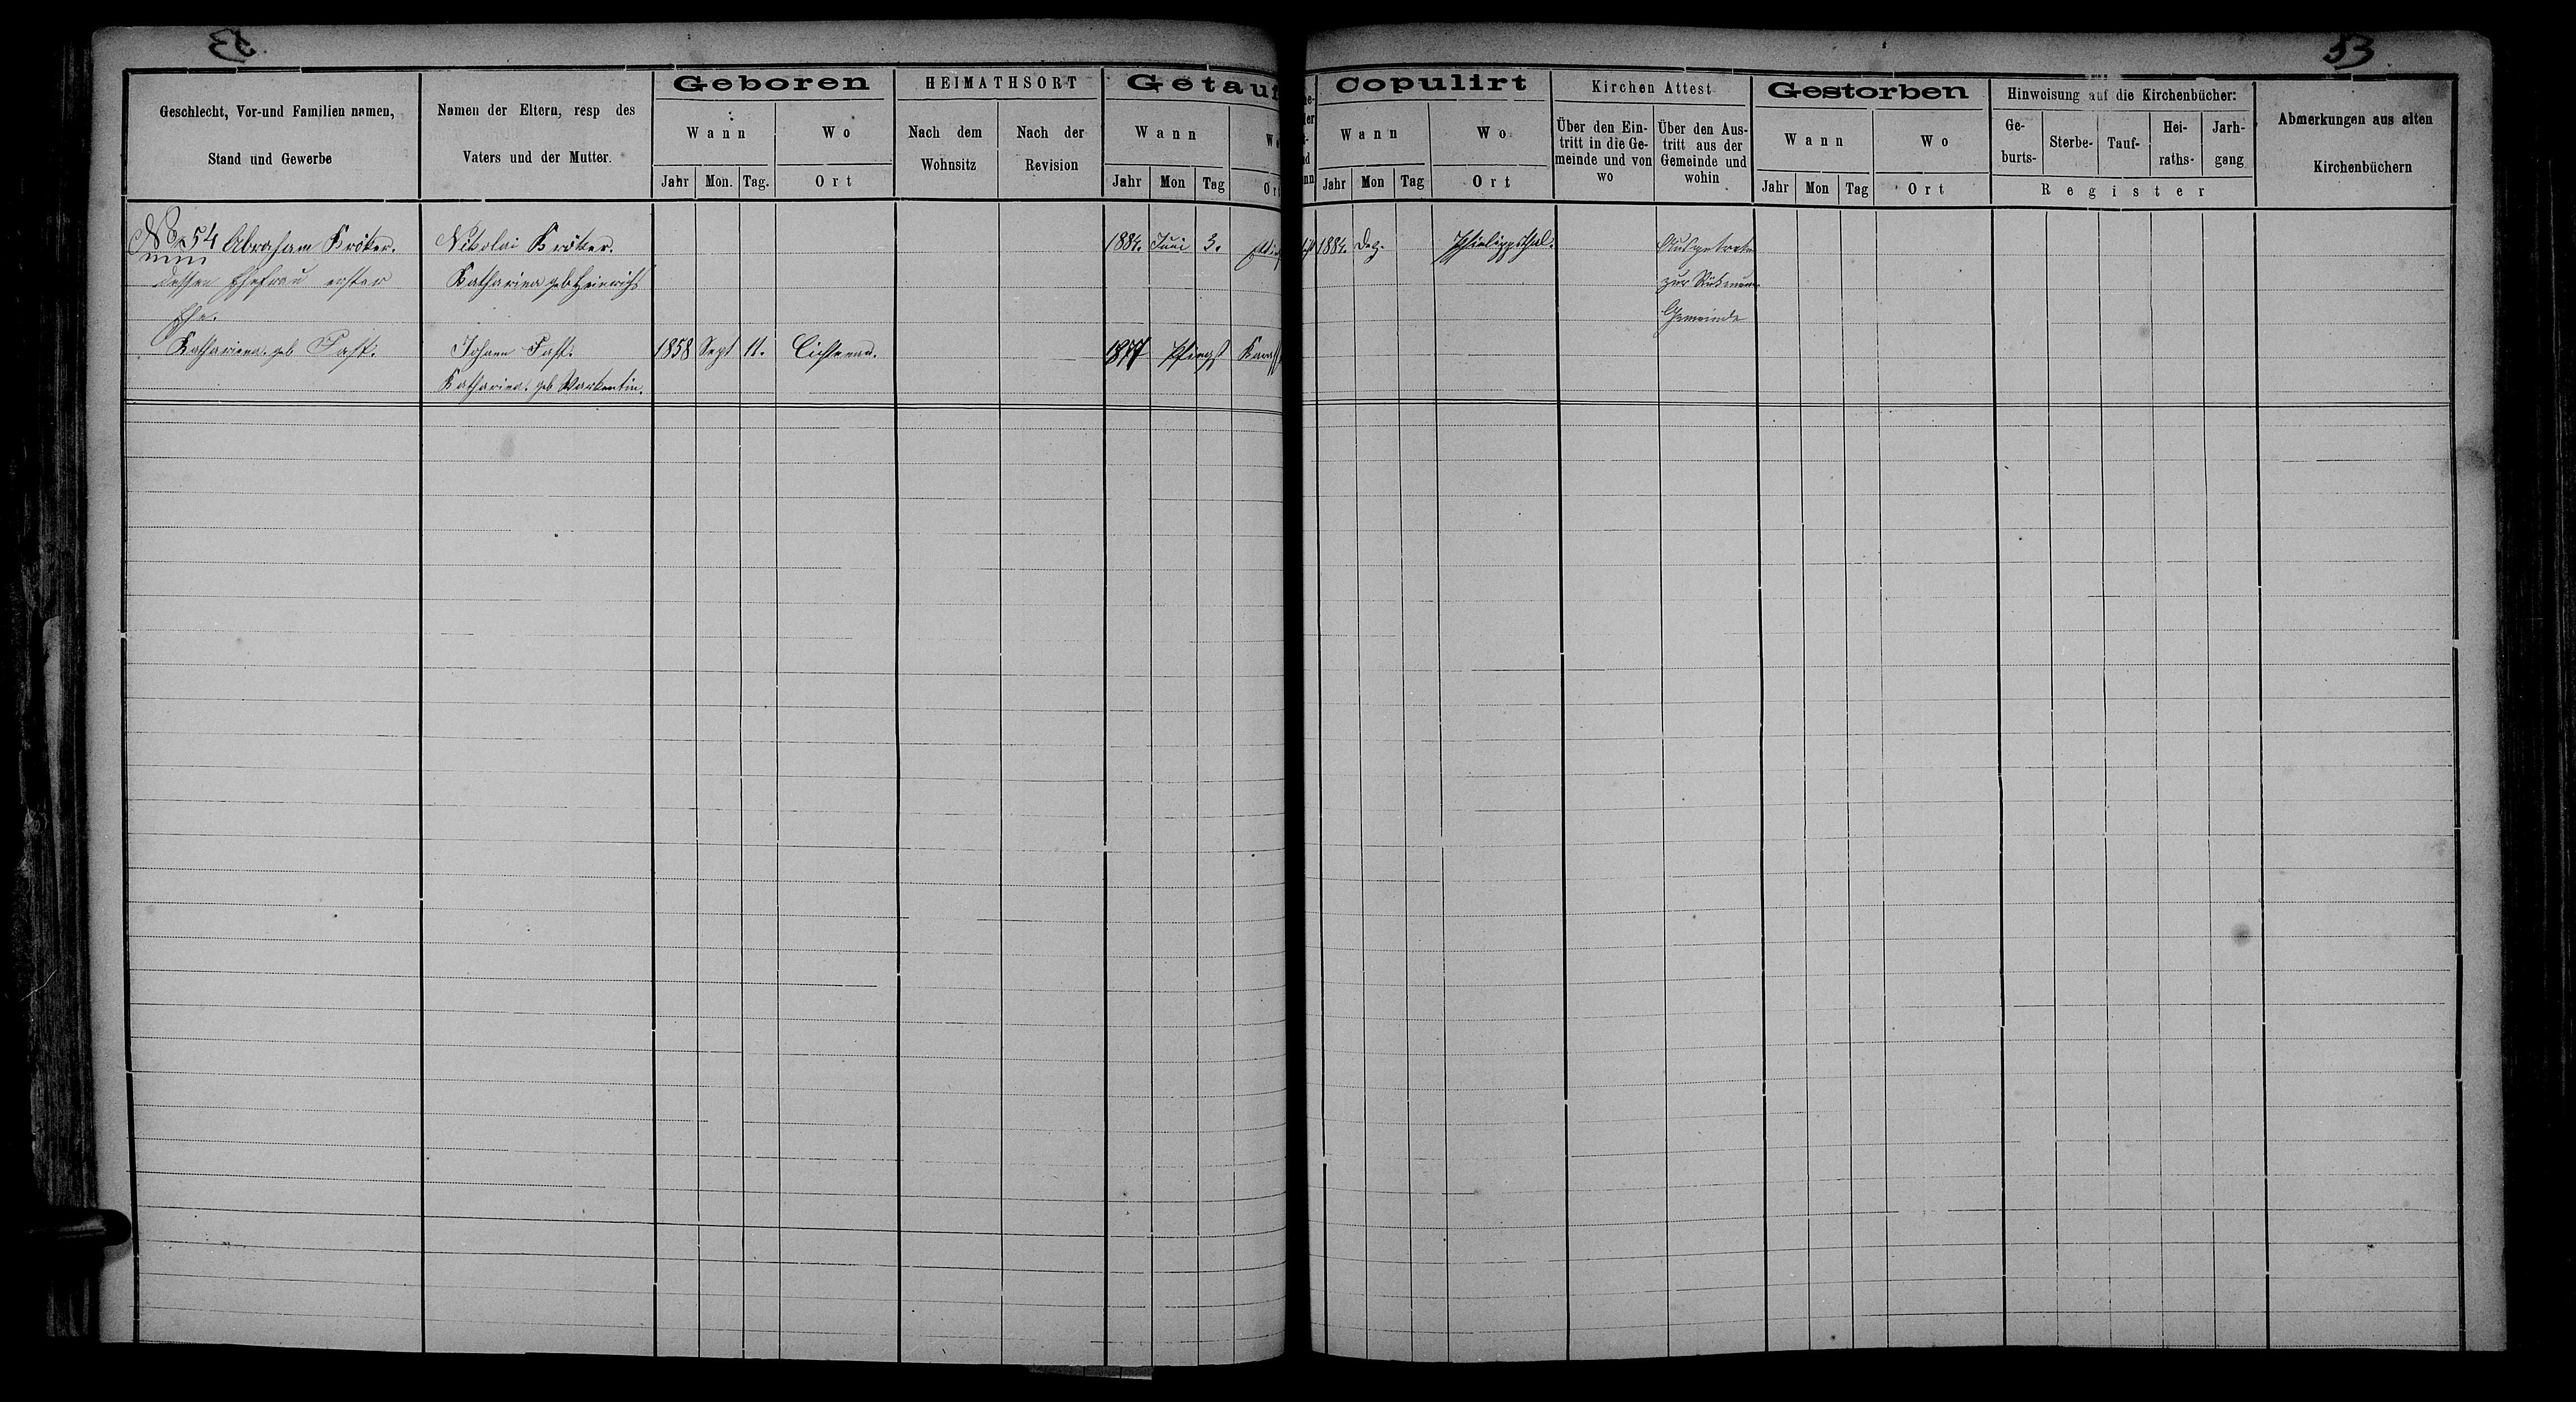 53
53
Geschlecht, Vor-und Familien namen,
Stand und Gewerbe
Namen der Eltern, resp des
Vaters und der Mutter.
Geboren
Wann
Wo
Jahr Mon. Tag.
Ort
HEIMATHSORT
Nach dem
Wohnsitz
Nach der
Revision
Getauf
Wann
Jahr Mon Tag
Copulirt
Wann
Wo
Jahr Mon Tag
Ort
Kirchen Attest
Über den Ein-
tritt in die Ge-
meinde und von
wo
Über den Aus-
tritt aus der
Gemeinde und
wohin
Gestorben
Wann
Wo
Jahr Mon Tag
Ort
Hinweisung auf die Kirchenbücher:
Ge-
burts-
Sterbe-
Tauf-
Hei-
raths-
Jarh-
gang
Register
Abmerkungen aus alten
Kirchenbüchern
No 54 Abraham Kröker. Nikolai Kröker. 1884. Juni 3. 1884. Dez. Philippsthal. Ausgetreten
dessen Ehefrau erster Katharina geb Heinrichs zur Rükenauer
Ehe. Gemeinde
Katharina. geb Fast. Johann Fast. 1858 Sept 11. Lichtenau. 1877 Pfingst
Katharina. geb Warkentin.